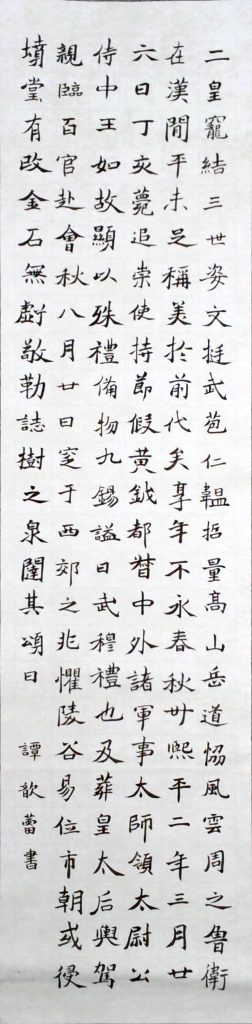 二皇寵結三世姿文挺武苞仁韞哲量高山岳道恊風雲周之魯衛
在漢閒平未足稱美於前代矣享年不永春秋卅熙平二年三月廿
六日丁亥薨追崇使持節假黃鉞都督中外諸軍事太師領太尉公
侍中王如故顯以殊禮備物九錫謚曰武穆禮也及葬皇太后輿駕
親臨百官赴會秋八月廿日窆于西郊之兆懼陵谷易位市朝或侵
墳堂有改金石無虧敬勒誌樹之泉闥其頌曰 譚歆蕾書